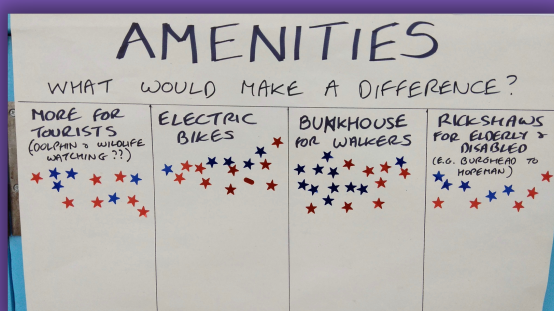 AMENITIES
WHAT WOULD MAKE A DIFFERENCE?
MORE FOR
TOURISTS
(DOLPHIN & WILDLIFE
WATCHING??)
ELECTRIC
BIKES
BUNKHOUSE
FOR WALKERS
RICKSHAWS
FOR ELDERLY &
DISABLED
(E.G. BURGHEAD TO
HOPEMAN)